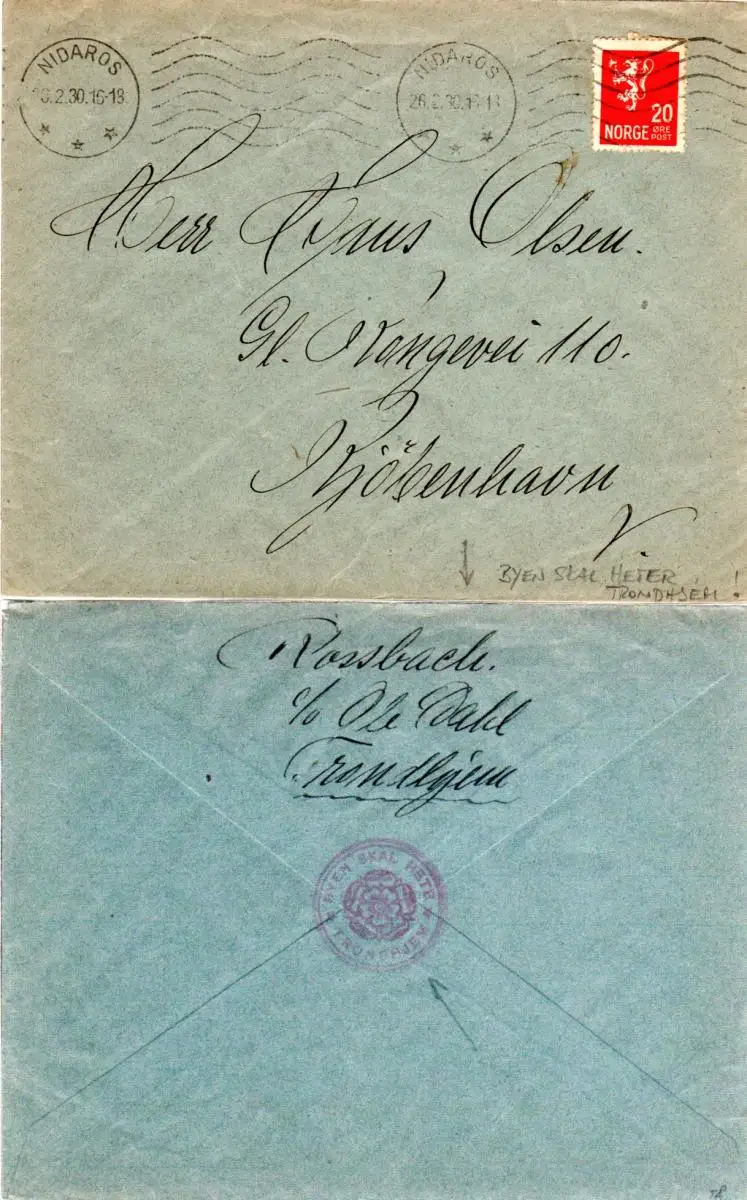 NIDAROS
26.2.30.16-18
NIDAROS
26.2.30.16-18
20
NORGE ØRE
POST
Herr Hans Olsen.
Gl. Kongevei 110.
Kjöbenhavn
V.
BYEN SKAL HETER
TRONDHJEM!
Rossbach.
c/o Ole Dahl
Trondhjem
BYEN SKAL HETE
TRONDHJEM